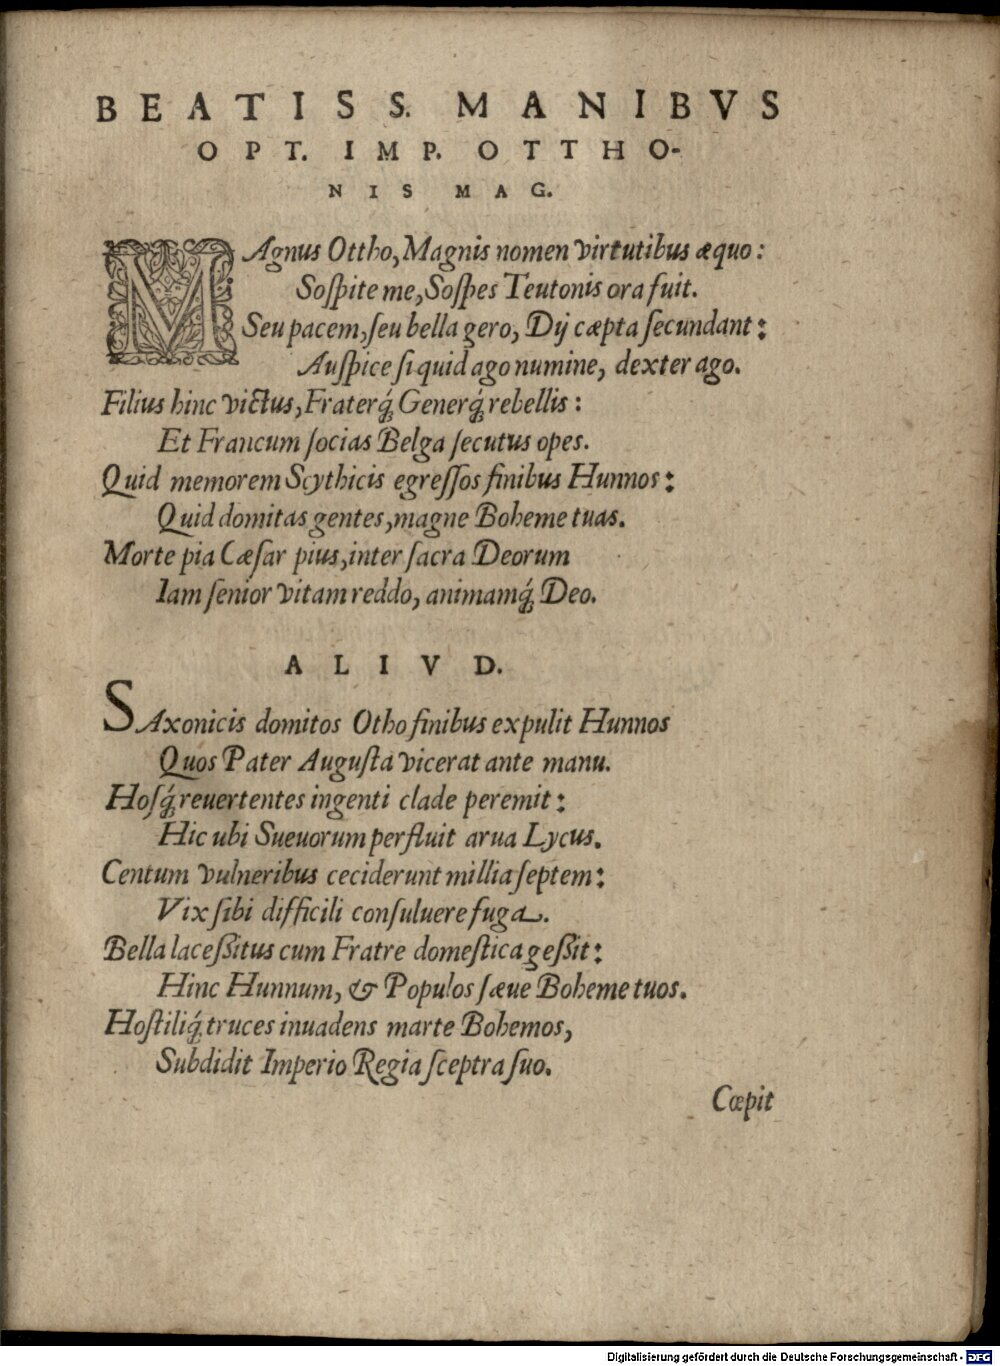 BEATISS. MANIBVS
OPT. IMP. OTTHO-
NIS MAG.
MAgnus Ottho, Magnis nomen virtutibus æquo:
Soſpite me, Soſpes Teutonis ora fuit.
Seu pacem, ſeu bella gero, Dij cæpta ſecundant:
Auſpice ſi quid ago numine, dexter ago.
Filius hinc victus, Fraterq́; Generq́; rebellis:
Et Francum ſocias Belga ſecutus opes.
Quid memorem Scythicis egreſſos finibus Hunnos:
Quid domitas gentes, magne Boheme tuas.
Morte pia Cæſar pius, inter ſacra Deorum
Iam ſenior vitam reddo, animamq́; Deo.
ALIVD.
SAxonicis domitos Otho finibus expulit Hunnos
Quos Pater Auguſta vicerat ante manu.
Hoſq́; reuertentes ingenti clade peremit:
Hic ubi Sueuorum perfluit arua Lycus.
Centum vulneribus ceciderunt millia ſeptem:
Vix ſibi difficili conſuluere fuga.
Bella laceßitus cum Fratre domeſtica geßit:
Hinc Hunnum, & Populos ſæue Boheme tuos.
Hoſtiliq́; truces inuadens marte Bohemos,
Subdidit Imperio Regia ſceptra ſuo.
Cœpit
Digitalisierung gefördert durch die Deutsche Forschungsgemeinschaft - DFG